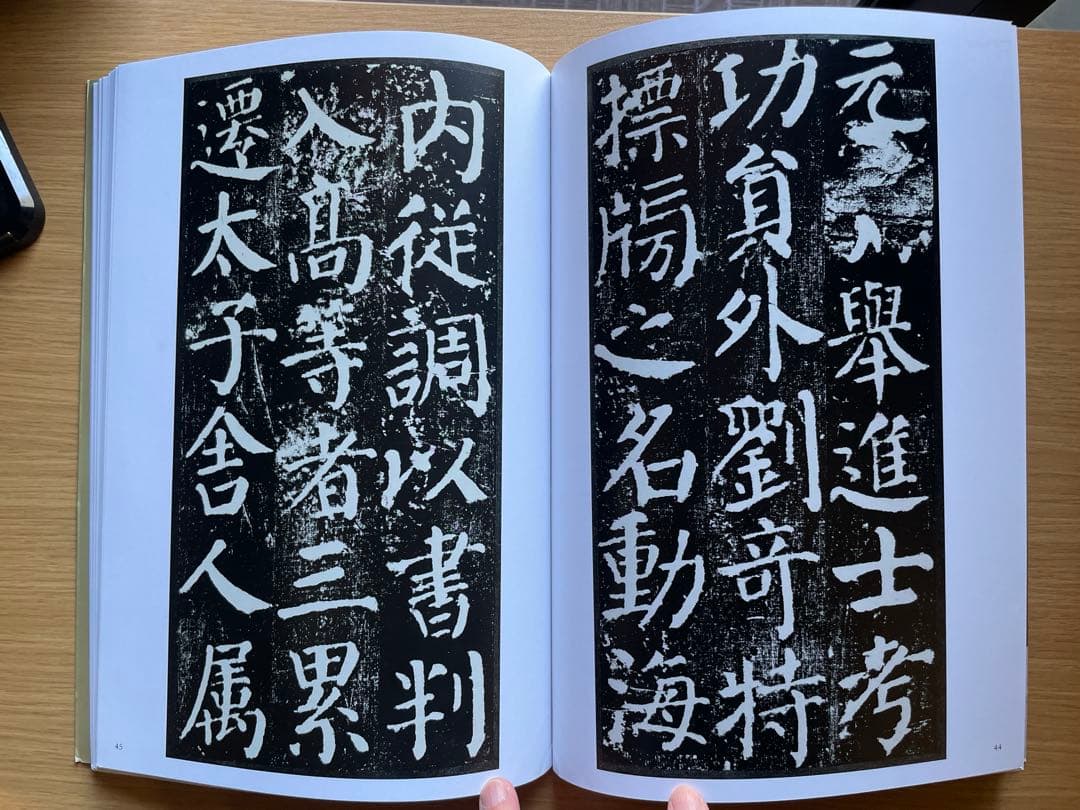 元 舉進士考
功貟外劉竒特
摽牓之名動海
内從調以書判
入髙等者三累
遷太子舎人属
44
45